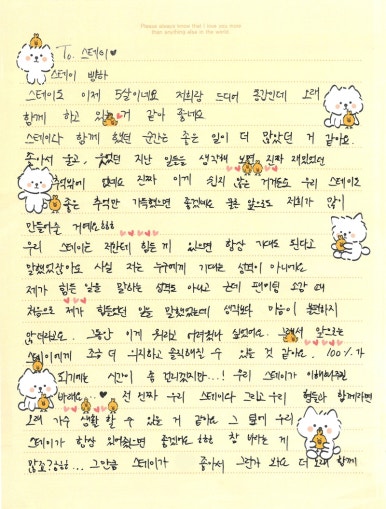 Please always know that I love you more
than anything else in the world.
To. 스테이♥
스테이 방하
스테이도 이제 5살이네요 저희랑 드디어 동갑인데 오래
함께 하고 있는 거 같아 좋네요
스테이와 함께 했던 순간는 좋은 일이 더 많았던 거 같아요.
좋아서 울고, 웃었던 지난 일들을 생각해 보면 진짜 재밌었던
추억밖에 없네요 진짜 이게 쉽지 않은 거거든요 우리 스테이도
좋은 추억만 가득했으면 좋겠네요 물론 앞으로도 저희가 많이
만들어줄 거예요ㅎㅎㅎ
우리 스테이는 저한테 힘든 게 있으면 항상 기대도 된다고
말했었잖아요 사실 저는 누구에게 기대는 성격이 아니거든요
제가 힘든 일을 말하는 성격도 아니고 근데 팬미팅 소감 때
처음으로 제가 힘들었던 일을 말했었는데 생각보다 마음이 불편하지
않더라고요. 그동안 이게 뭐라고 어려웠나 싶었어요. 그래서 앞으로는
스테이에게 조금 더 의지하고 솔직해질 수 있는 것 같아요. 100%가
되기에는 시간이 좀 걸리겠지만...! 우리 스테이가 이해해주길
바래요...♥ 전 진짜 우리 스테이 그리고 우리 형들과 함께라면
오래 가수 생활 할 수 있는 거 같아요 그 옆에 우리
스테이가 항상 있어줬으면 좋겠어요 ㅎㅎㅎ 참 바라는 게
많죠?ㅎㅎㅎ... 그만큼 스테이가 좋아서 그런가 봐요 더 오래 함께